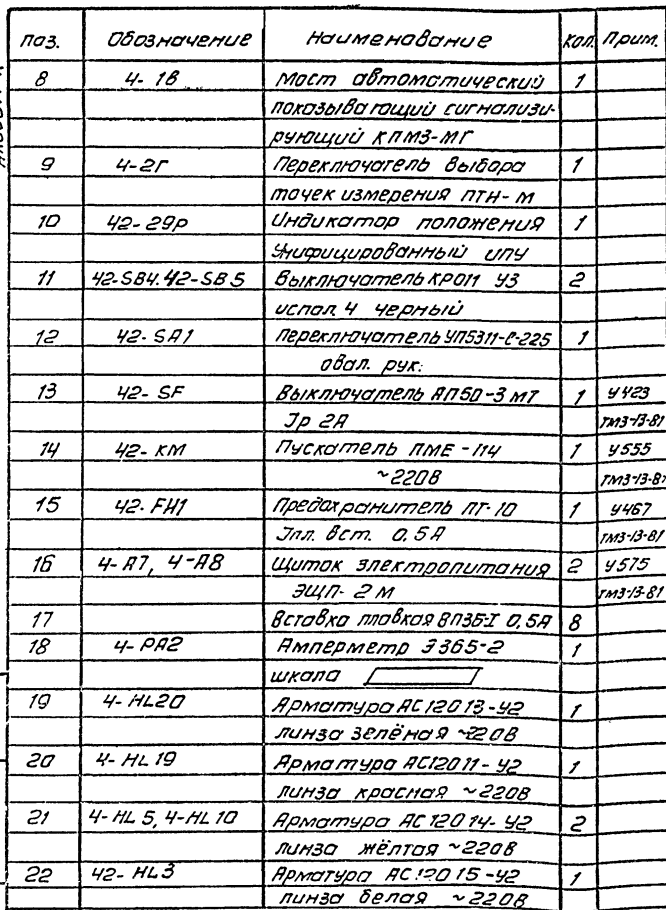 Поз. Обозначение Наименование Кол. Прим.
8 4-1в Мост автоматический 1
показывающий сигнализи-
рующий КПМЗ-МГ
9 4-2г Переключатель выбора 1
точек измерения ПТН-М
10 42-29р Индикатор положения 1
Унифицированный ИПУ
11 42-SB4. 42-SB5 Выключатель КР011 У3 2
испол. 4 черный
12 42-SA1 Переключатель УП5311-С-225 1
овал. рук.
13 42-SF Выключатель АП50-3МТ 1 У423
Iр 2А ТМ3-13-81
14 42-КМ Пускатель ПМЕ-114 1 У555
~220В ТМ3-13-81
15 42-FИ1 Предохранитель ПТ-10 1 У467
Iпл. вст. 0.5А ТМ3-13-81
16 4-А7, 4-А8 Щиток электропитания 2 У575
ЭЩП-2М ТМ3-13-81
17 Вставка плавкая ВП3Б-I 0,5А 8
18 4-РА2 Амперметр Э365-2 1
шкала
19 4-HL20 Арматура АС12013-У2 1
линза зелёная ~220В
20 4-HL19 Арматура АС12011-У2 1
линза красная ~220В
21 4-HL5, 4-HL10 Арматура АС12014-У2 2
линза жёлтая ~220В
22 42-HL3 Арматура АС12015-У2 1
линза белая ~220В